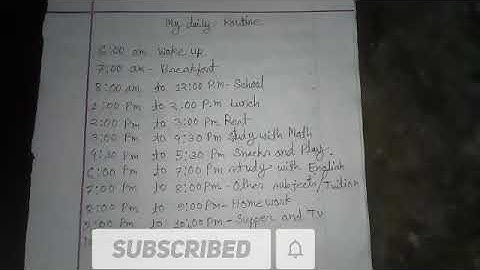 My daily Routine
6:00 am Wake up.
7:00 am - Breakfast
8:00 am to 12:00 P.m - School
1:00 Pm to 2.00 P.m Lunch
2:00 Pm to 3:00 Pm Rest
3:00 Pm to 4:30 Pm Study with Math
4:30 Pm to 5:30 Pm Snacks and Play.
6:00 Pm to 7:00 Pm study with English
7:00 Pm to 8:00 Pm - Other subjects/Tuition
8:00 Pm to 9:00 Pm - Home work
9:00 Pm to 10:00 Pm - Supper and TV
SUBSCRIBED